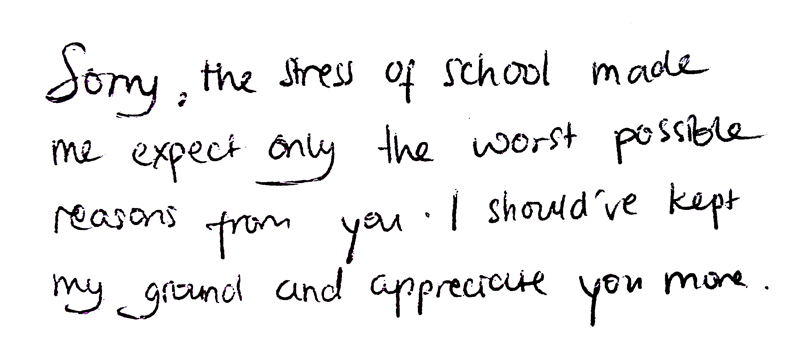 Sorry, the stress of school made
me expect only the worst possible
reasons from you. I should've kept
my ground and appreciate you more.